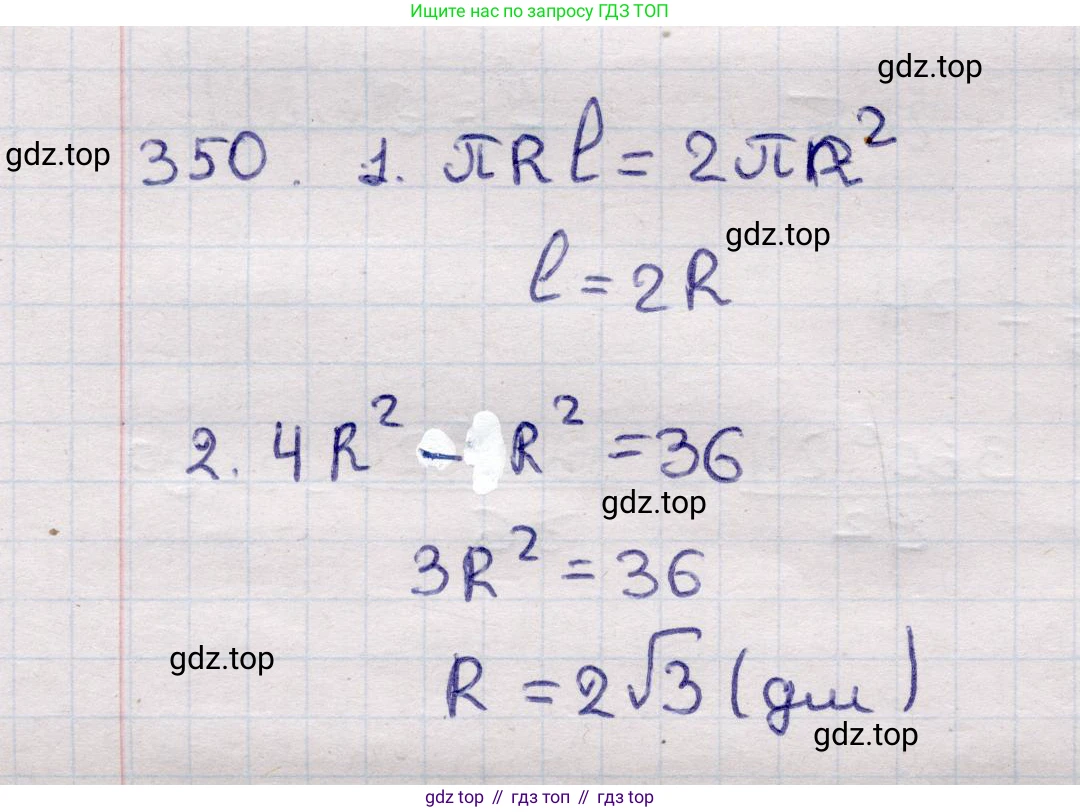 Ищите нас по запросу ГДЗ ТОП
gdz.top
gdz.top
350. 1. πRl = 2πR²
gdz.top
l = 2R
2. 4R² - R² = 36
gdz.top
3R² = 36
gdz.top
R = 2√3 (дм)
gdz.top
gdz top // гдз топ // gdz top